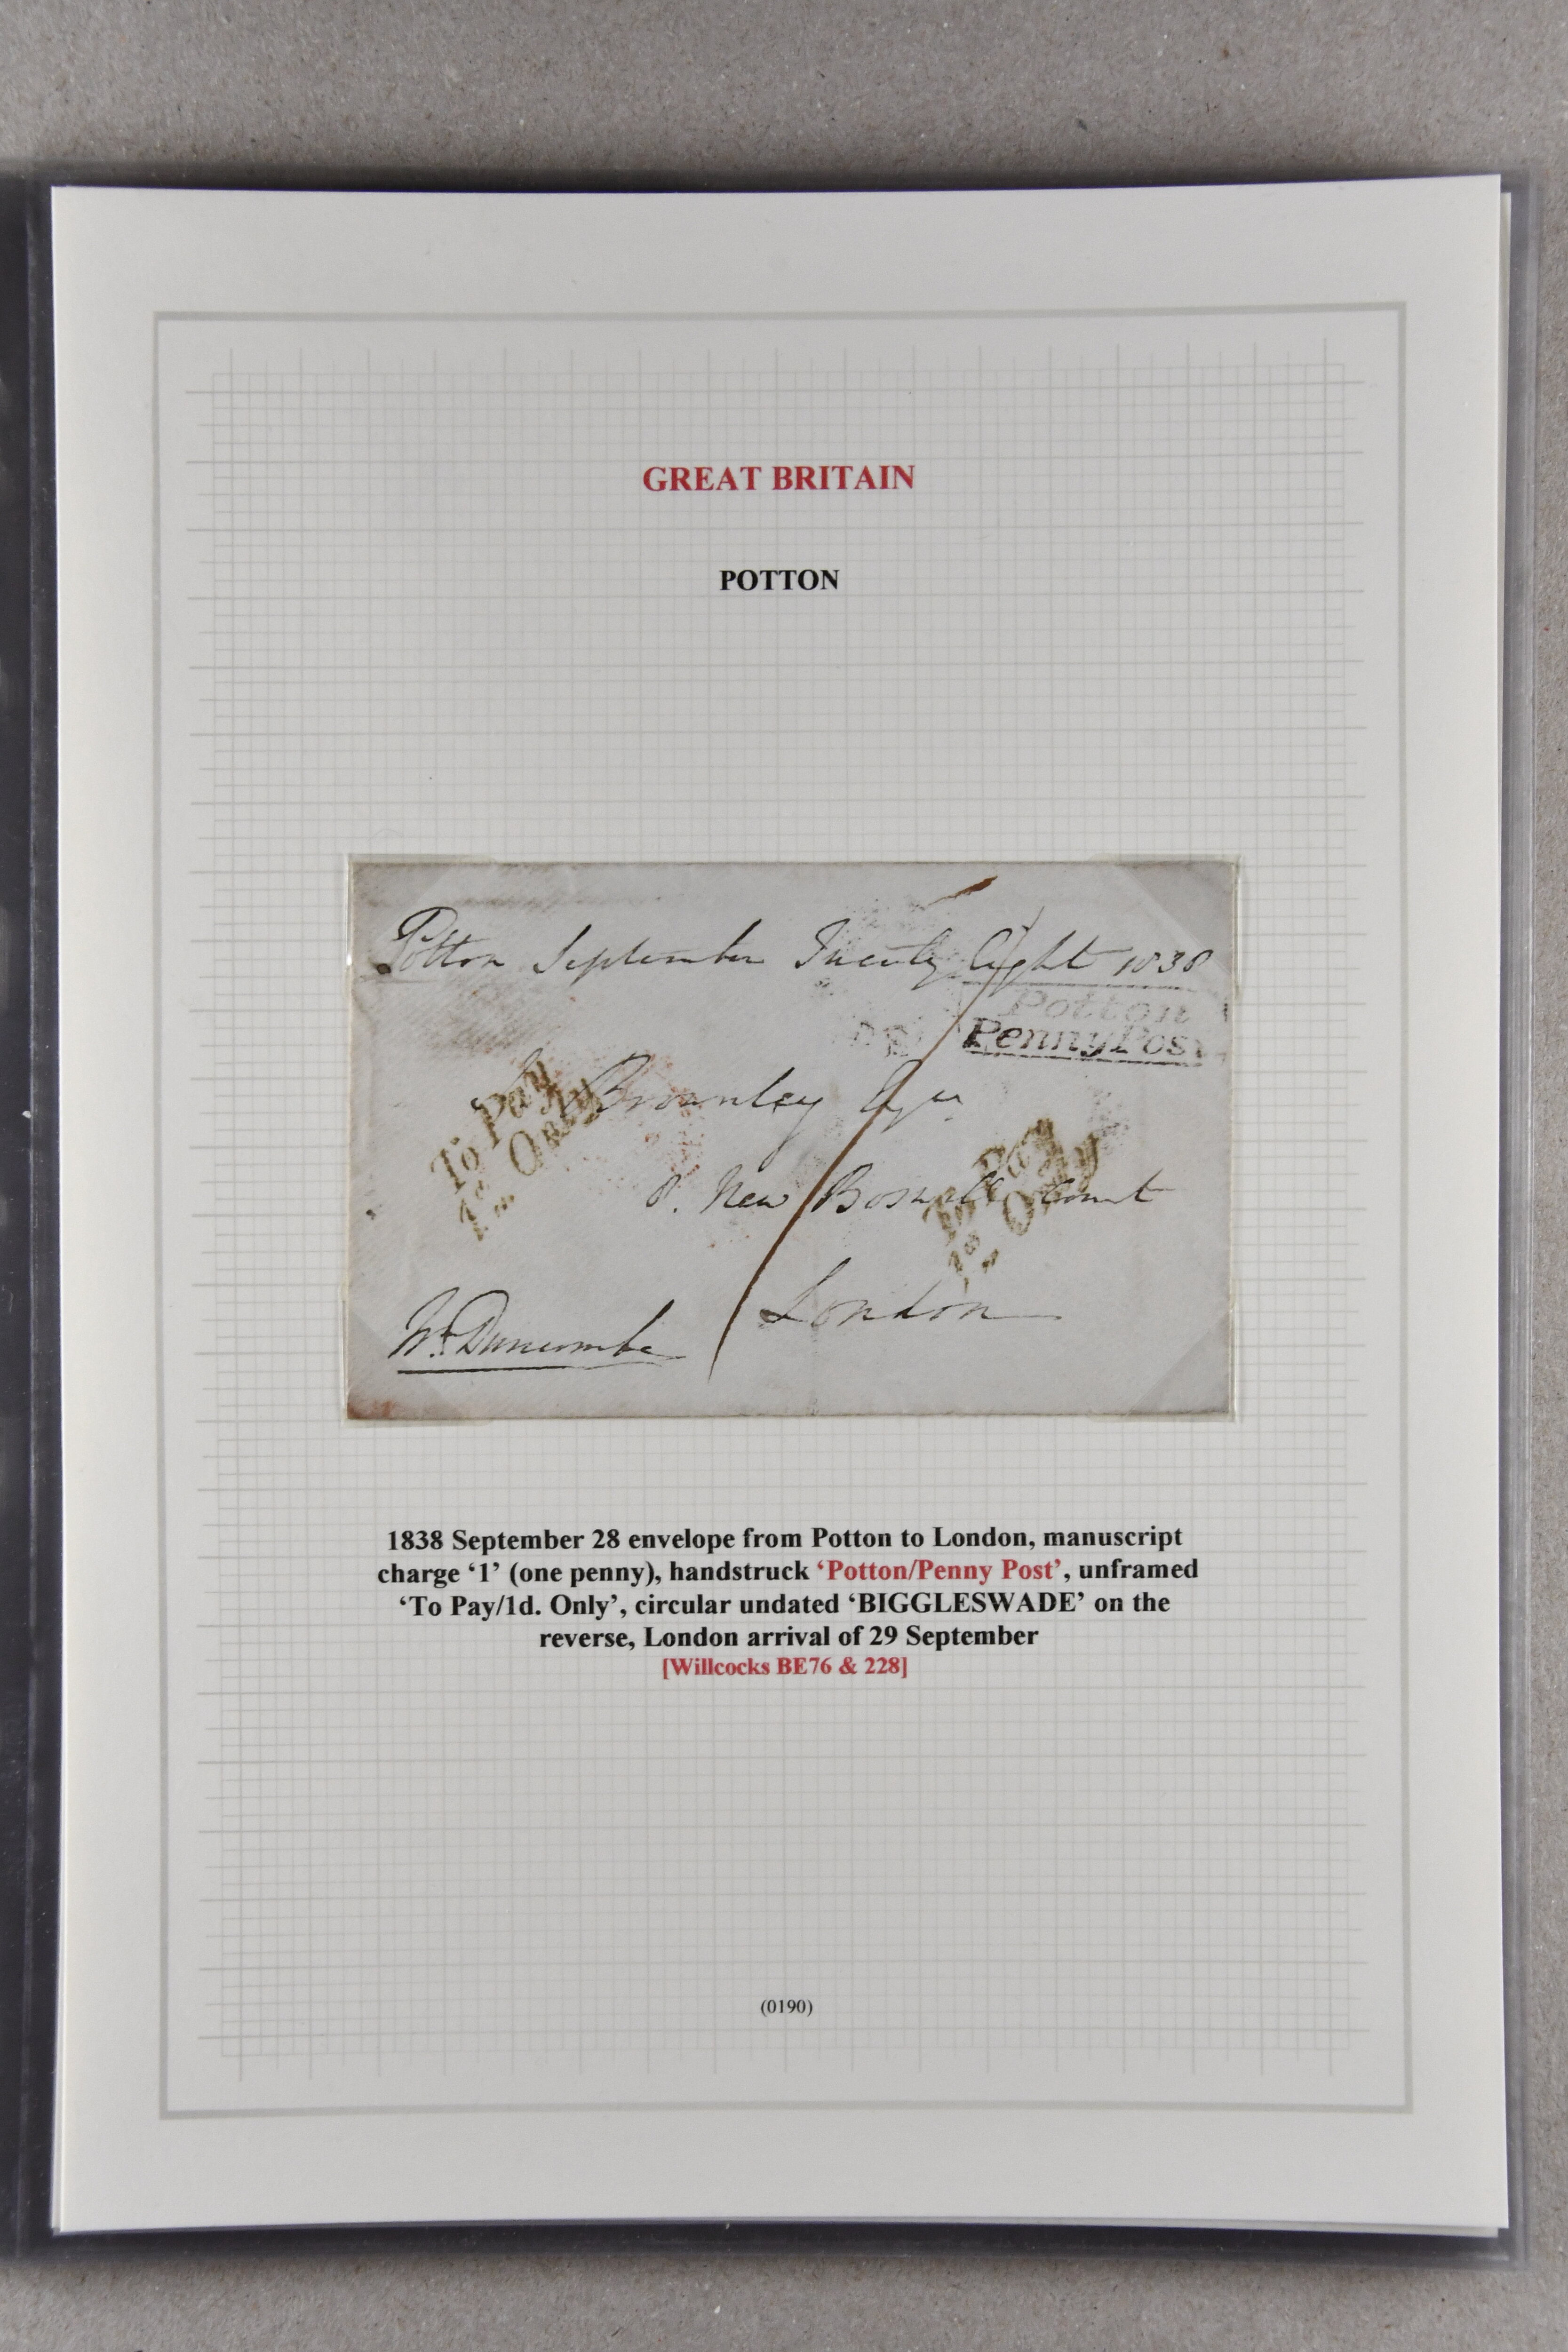 GREAT BRITAIN
POTTON
Potton September Twenty Eight 1838
Potton
Penny Post
Bromley Esqr
To Pay
1d. Only
8. New Boswell Court
To Pay
1d. Only
London
Wm. Duncombe
1838 September 28 envelope from Potton to London, manuscript
charge ‘1’ (one penny), handstruck ‘Potton/Penny Post’, unframed
‘To Pay/1d. Only’, circular undated ‘BIGGLESWADE’ on the
reverse, London arrival of 29 September
[Willcocks BE76 & 228]
(0190)